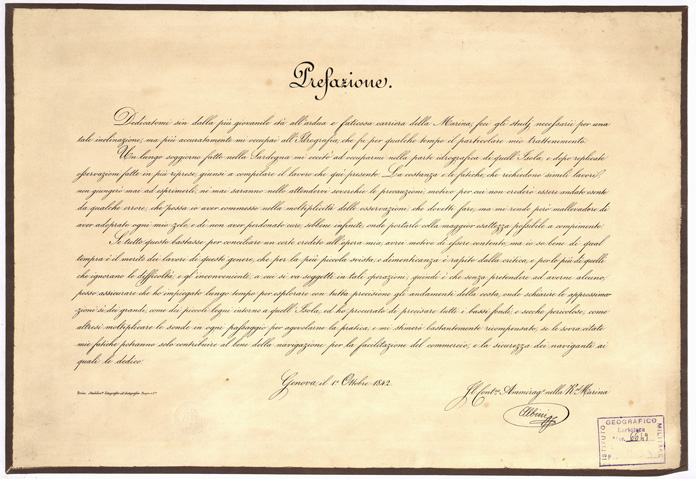 Prefazione.
Dedicatomi sin dalla più giovanile età all'ardua e faticosa carriera della Marina, feci gli studj necessarii per una
tale inclinazione, ma più accuratamente mi occupai all'Idrografia, che fu per qualche tempo il particolare mio trattenimento.
Un lungo soggiorno fatto nella Sardegna mi eccitò ad occuparmi nella parte idrografica di quell'Isola, e dopo replicate
osservazioni fatte in più riprese, giunsi a compilare il lavoro che qui presento. La costanza e le fatiche, che richiedono simili lavori,
non giungerei mai ad esprimerle, nè mai saranno nello attendere soverchie le precauzioni, motivo per cui non crederei essere andato esente
da qualche errore, che possa io aver commesso nella moltiplicità delle osservazioni, che dovetti fare, ma mi rende però mallevadore di
aver adoprato ogni mio zelo, e di non aver perdonato cure, sebbene infinite, onde portarlo colla maggior esattezza possibile a compimento.
Se tutto questo bastasse per conciliare un certo credito all'opera mia, avrei motivo di essere contento, ma io so bene di qual
tempra è il merito dei lavori di questo genere, che per la più piccola svista, e dimenticanza è rapito dalla critica, e per lo più da quelli
che ignorano le difficoltà, e gl'inconvenienti, a cui si va soggetti in tale operazioni, quindi è che senza pretendere ad averne alcuno,
posso assicurare che ho impiegato lungo tempo per esplorare con tutta precisione gli andamenti della costa, onde schiarire le approssima
zioni sì dei grandi, come dei piccoli legni intorno a quell'Isola, ed ho procurato di precisare tutti i bassi fondi, e secche pericolose, come
altresì moltiplicare le sonde in ogni passaggio per agevolarne la pratica, e mi stimerei bastantemente ricompensato, se le sovra citate
mie fatiche potranno solo contribuire al bene della navigazione per la facilitazione del commercio, e la sicurezza dei naviganti ai
quali le dedico.
Genova, il 1º Ottobre 1842.
Il Contr. Ammirag. nella R. Marina
Albini
ISTITUTO GEOGRAFICO MILITARE
6649